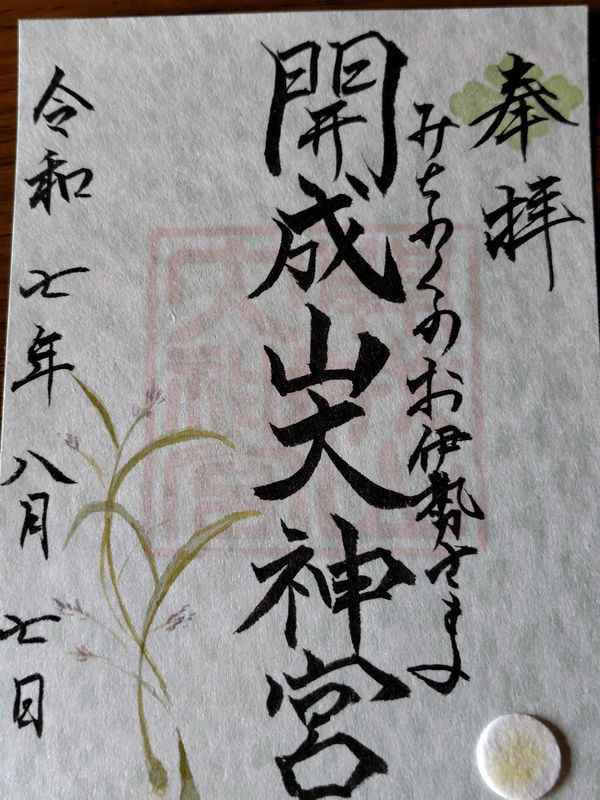 奉拝
みちのくのお伊勢さま
開成山大神宮
令和七年八月七日